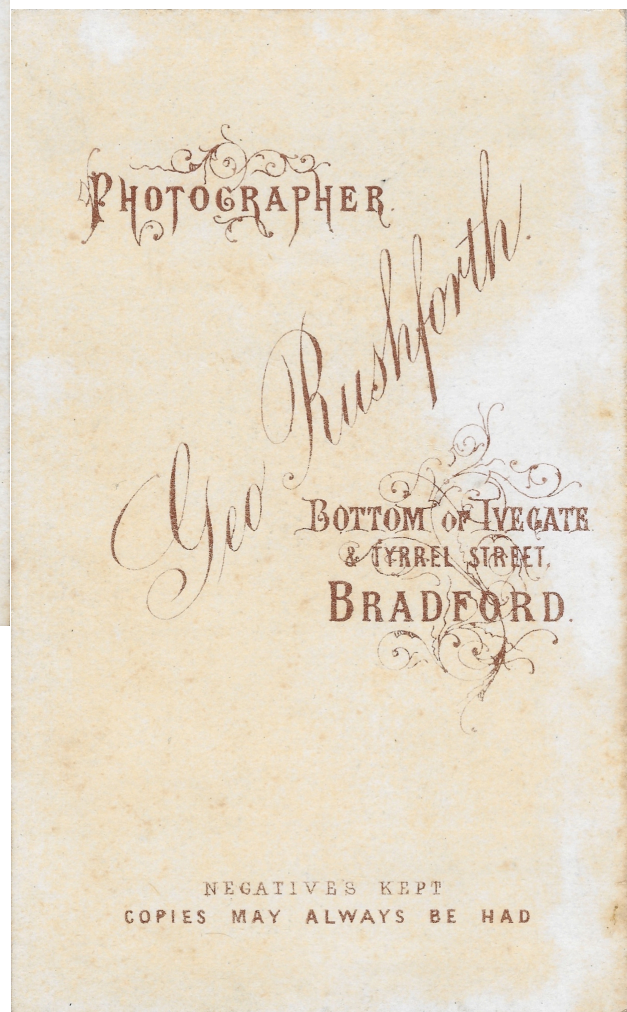 PHOTOGRAPHER.
Geo Rushforth.
BOTTOM OF IVEGATE
& TYRREL STREET,
BRADFORD.
NEGATIVES KEPT
COPIES MAY ALWAYS BE HAD